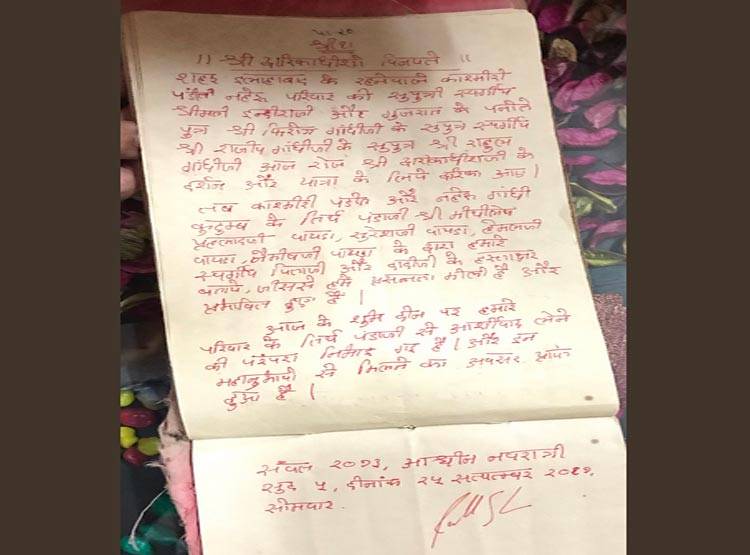 पा. २०
श्री १।
।। श्री द्वारिकाधीशो विजयते ।।
शहर इलाहाबाद के रहनेवाले काश्मीरी
पंडीत नहेरु परिवार की सुपुत्री स्वर्गीय
श्रीमती इन्दीराजी और गुजरात के पनोते
पुत्र श्री फिरोज गांधीजी के सुपुत्र स्वर्गीय
श्री राजीव गांधीजी के सुपुत्र श्री राहुल
गांधीजी आज रोज श्री द्वारिकाधीशजी के
दर्शन और यात्रा के लिये द्वारिका आए।
तब काश्मीरी पंडीत और नहेरु गांधी
कुटुम्ब के तिर्थ पंडाजी श्री
प्रहलादजी पायडा, सुरेशजी पायडा, हेमलजी
पायडा, नैमीषजी पायडा के द्वारा हमारे
स्वर्गीय पिताजी और दादीजी के हस्ताक्षर
बताये, जीससे हमें प्रसन्नता मीली है और
प्रभावित हुए है।
आज के शुभ दीन पर हमारे
परिवार के तिर्थ पंडाजी से आर्शीवाद लेने
की परंपरा निभाइ गइ है। और इन
महानुभावो से मिलने का अवसर प्राप्त
हुआ है।
संवत २०७३, आश्वीन नवरात्री
सुद ५, दीनांक २५ सप्तम्बर २०१७,
सोमवार.